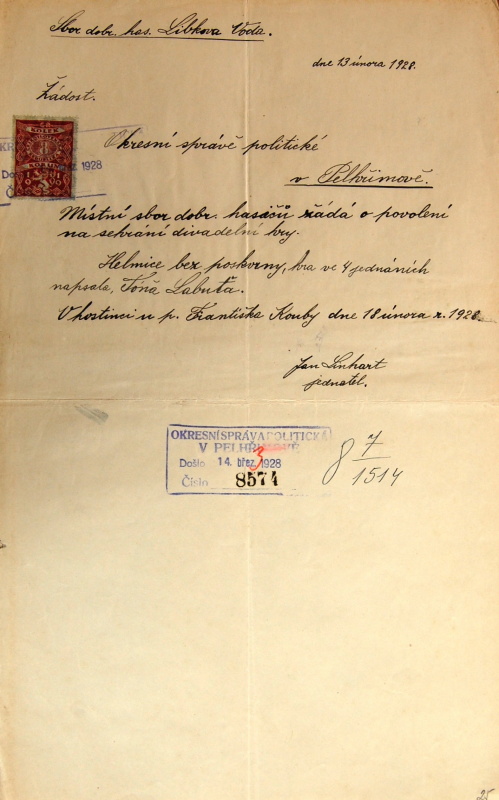 Sbor dobr. has. Libkova Voda.
dne 13 února 1928.
Žádost.
KOLEK
8
KORUN
1919
1928
Okresní správě politické
v Pelhřimově.
Místní sbor dobr. hasičů žádá o povolení
na sehrání divadelní hry.
Helmice bez poskvrny, hra ve 4 jednáních
napsala, Tóňa Labuťa.
V hostinci u p. Františka Kouby dne 18 února r. 1928.
Jan Linhart
jednatel.
OKRESNÍ SPRÁVA POLITICKÁ
V PELHŘIMOVĚ
Došlo 14. břez. 1928
3
Číslo 8574
8 7/1514
25